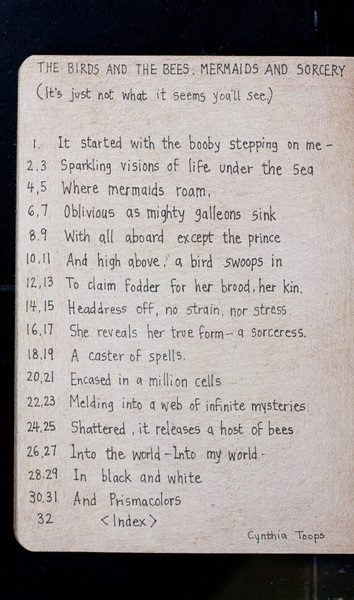 THE BIRDS AND THE BEES, MERMAIDS AND SORCERY
(It's just not what it seems you'll see.)
1. It started with the booby stepping on me -
2,3 Sparkling visions of life under the Sea
4,5 Where mermaids roam,
6,7 Oblivious as mighty galleons sink
8.9 With all aboard except the prince
10,11 And high above, a bird swoops in
12,13 To claim fodder for her brood, her kin.
14,15 Headdress off, no strain, nor stress.
16,17 She reveals her true form - a sorceress.
18,19 A caster of spells.
20,21 Encased in a million cells
22,23 Melding into a web of infinite mysteries.
24,25 Shattered, it releases a host of bees
26,27 Into the world - Into my world -
28.29 In black and white
30.31 And Prismacolors
32 <Index>
Cynthia Toops